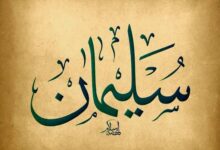 سُلَيْمان